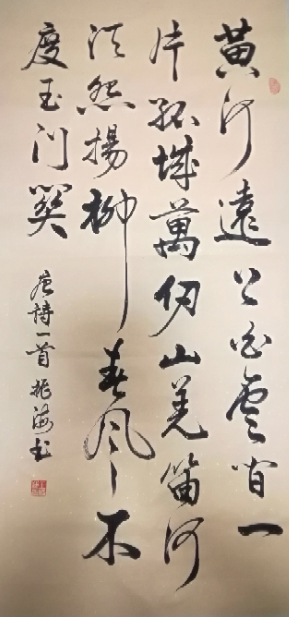 黄河遠上白雲間一
片孤城萬仞山羌笛何
須怨楊柳春風不
度玉门関
唐詩一首振海书